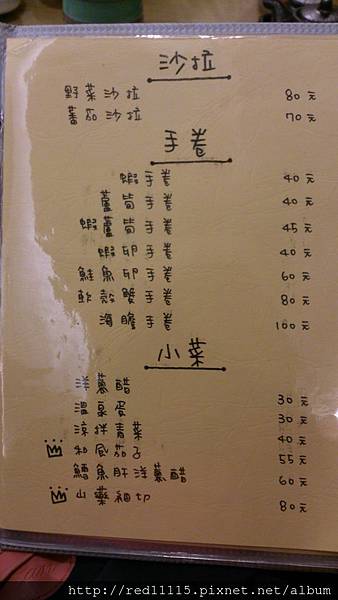 沙拉
野菜沙拉 80元
蕃茄沙拉 70元
手卷
蝦手卷 40元
蘆筍手卷 40元
蝦蘆筍手卷 45元
蝦卵手卷 40元
鮭魚卵手卷 60元
軟殼蟹手卷 80元
海膽手卷 100元
小菜
洋蔥醋 30元
溫泉蛋 30元
涼拌青菜 40元
和風茄子 55元
鱈魚肝洋蔥醋 60元
山藥細切 80元
http://red11115.pixnet.net/album